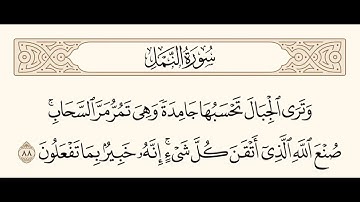 سُورَةُ النَّمْلِ
وَتَرَى ٱلْجِبَالَ تَحْسَبُهَا جَامِدَةً وَهِىَ تَمُرُّ مَرَّ ٱلسَّحَابِ ۚ
صُنْعَ ٱللَّهِ ٱلَّذِىٓ أَتْقَنَ كُلَّ شَىْءٍ ۚ إِنَّهُۥ خَبِيرٌۢ بِمَا تَفْعَلُونَ ٨٨